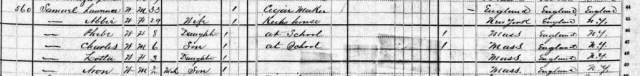 560 Samuel Lawrence W M 33 1 Cigar Maker England England England
— Abbie W F 29 Wife 1 Keeps house New York England N.Y.
— Phebe W F 8 Daught 1 at School 1 Mass England N.Y.
— Charles W M 6 Son 1 at School 1 Mass England N.Y.
— Lotta W F 3 Daught 1 Mass England N.Y.
— Aron W M Son 1 Mass. England N.Y.